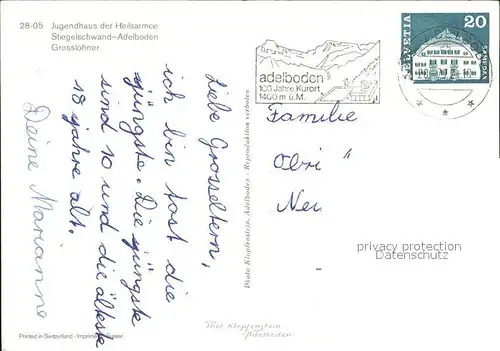 28-05 Jugendhaus der Heilsarmee
Stiegelschwand–Adelboden
Grosslohner
adelboden
100 Jahre Kurort
1400 m ü. M.
HELVETIA
20
Liebe Grosseltern,
ich bin fast die
jüngste. Die jüngste
sind 10 und die älteste
18 jahre alt.
Deine Marianne
Familie
Obri
Neu
privacy protection
Datenschutz
Photo Klopfenstein, Adelboden - Reproduktion verboten
Phot Klopfenstein
Adelboden
Printed in Switzerland -